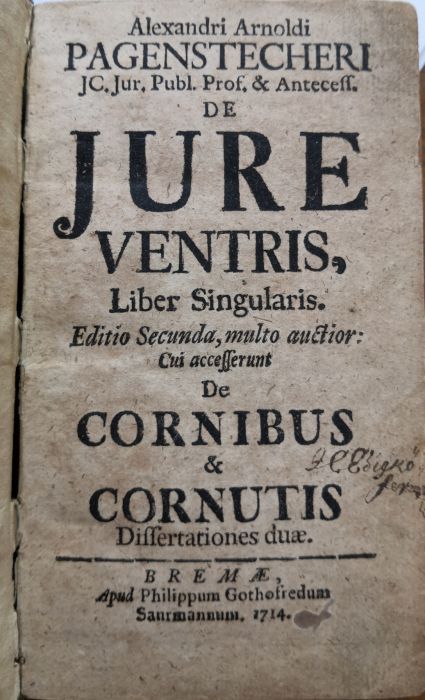 Alexandri Arnoldi
PAGENSTECHERI
JC. Jur. Publ. Prof. & Antecess.
DE
JURE
VENTRIS,
Liber Singularis.
Editio Secunda, multo auctior:
Cui accesserunt
De
CORNIBUS
&
CORNUTIS
Dissertationes duæ.
BREMÆ,
Apud Philippum Gothofredum
Saurmannum. 1714.